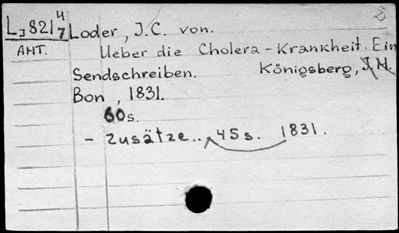 L₃821 4/7 Loder, J.C. von.
ANT. Ueber die Cholera-Krankheit. Ein
Sendschreiben. Königsberg, J.H.
Bon, 1831.
60s.
- Zusätze.. 45s. 1831.